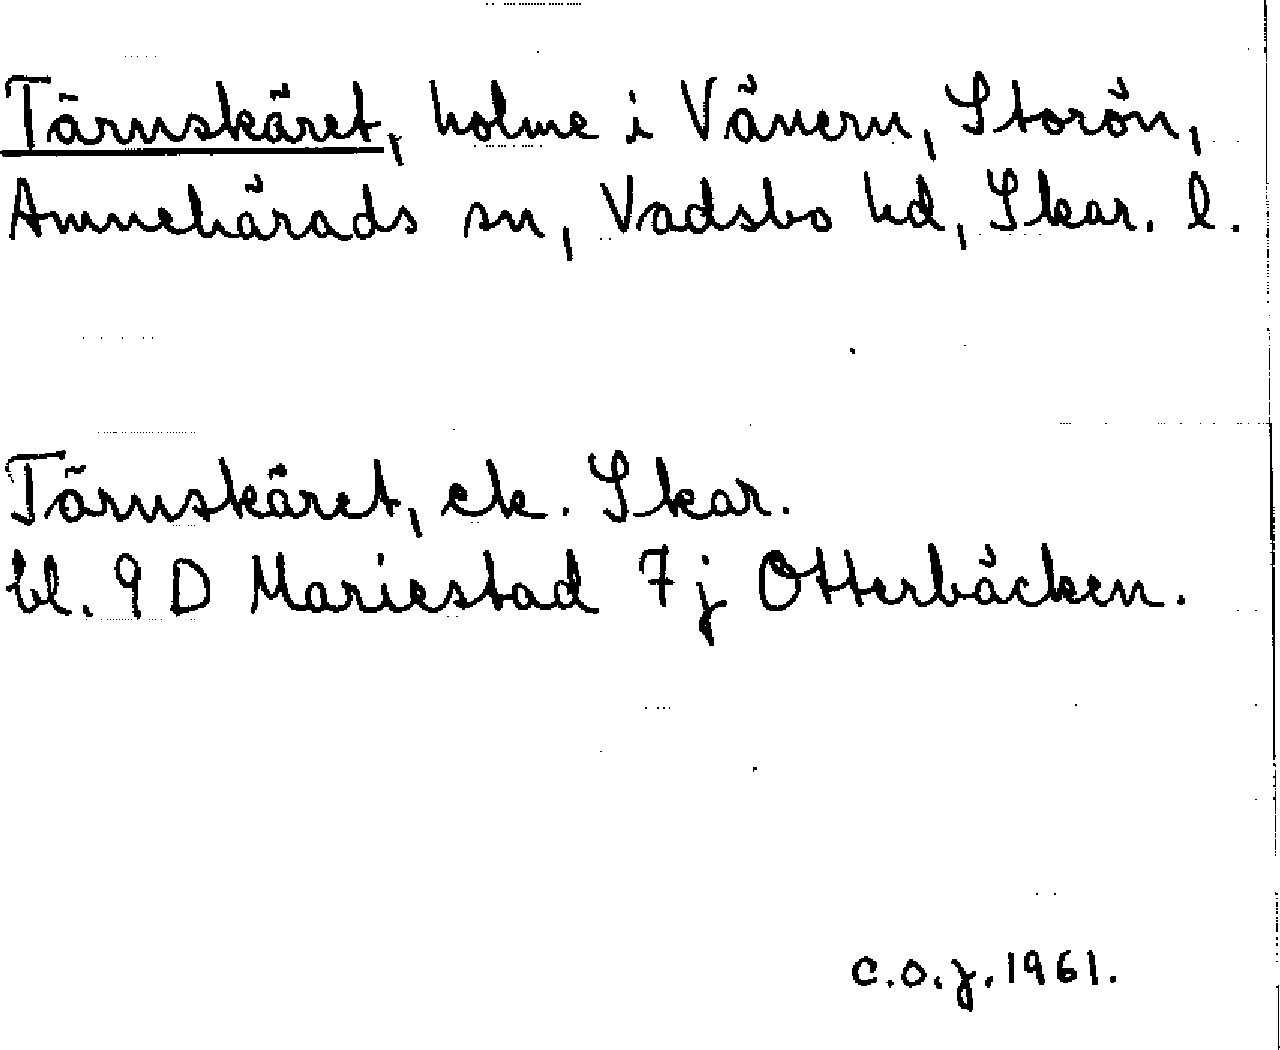 Tärnskäret, holme i Vänern, Storön,
Amnehärads sn, Vadsbo hd, Skar. l.
Tärnskäret, ek. Skar.
bl. 9 D Mariestad 7 j Otterbäcken.
C.O.J. 1961.